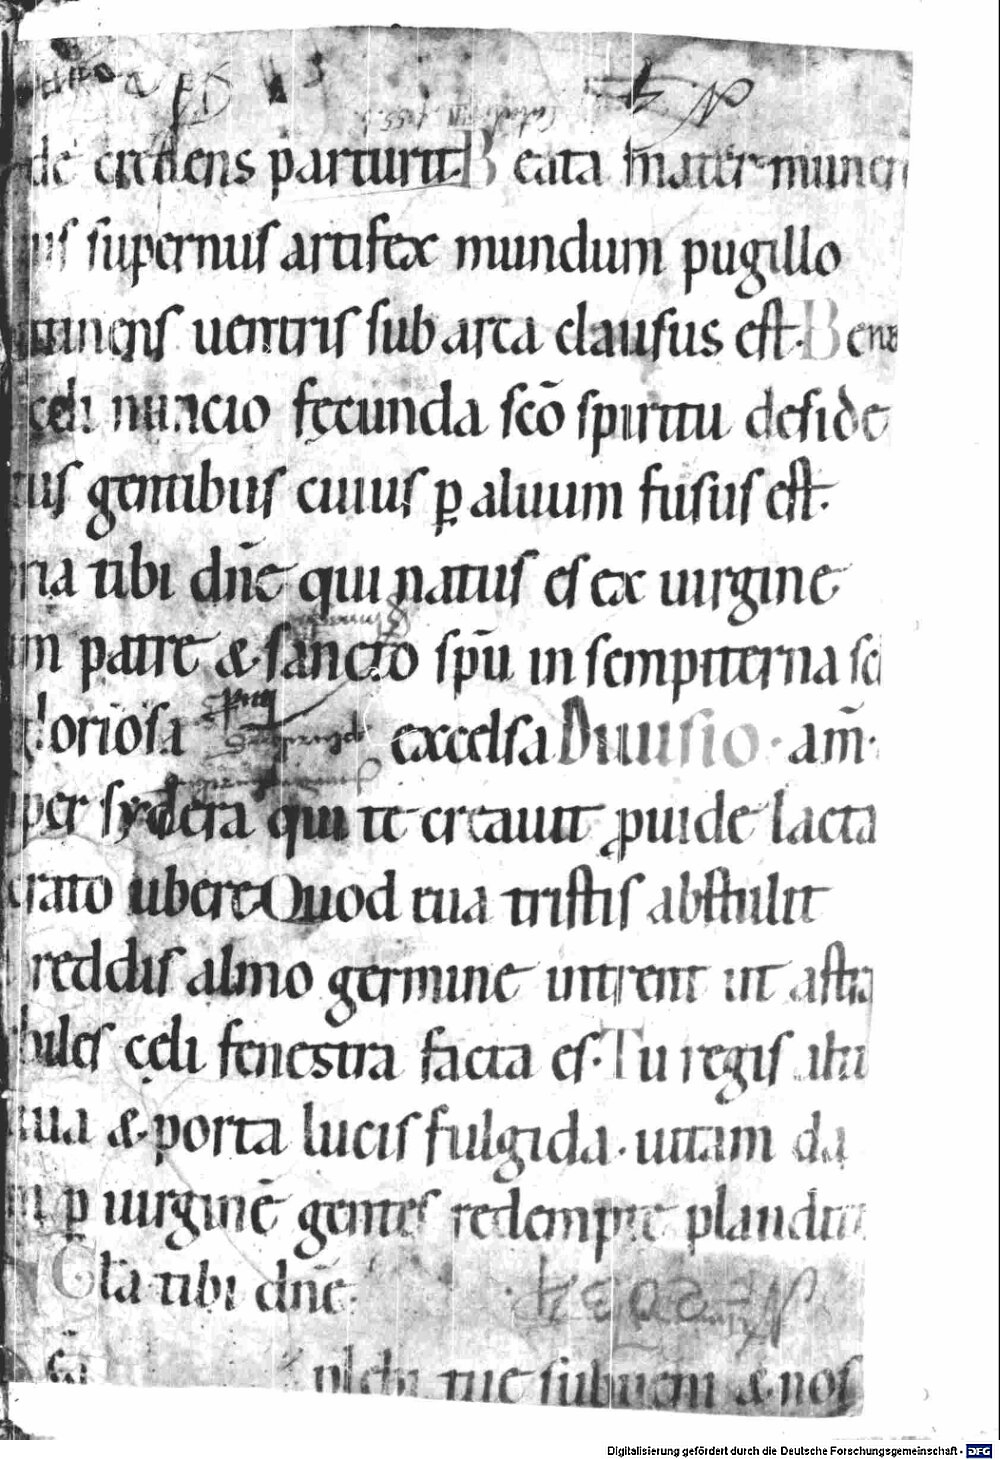 de credens parturit. Beata mater muner
us supernus artifex mundum pugillo
tinens uentris sub arca clausus est. Bea
celi nuncio fęcunda scō spiritu deside
tus gentibus cuius ꝑ aluum fusus est.
ria tibi dn̄e qui natus es ex uirgine
m patre & sancto spū in sempiterna sc
loriosa excelsa Diuisio · am̄ ·
per sydera qui te creauit ꝓuide lacta
crato ubere Quod eua tristis abstulit
reddis almo germine intrent ut astra
biles cęli fenestra facta es. Tu regis
ua & porta lucis fulgida . uitam da
m ꝑ uirginē gentes redempte plaudite
Gła tibi dn̄e.
plebi tue subueni & nos
Digitalisierung gefördert durch die Deutsche Forschungsgemeinschaft - DFG